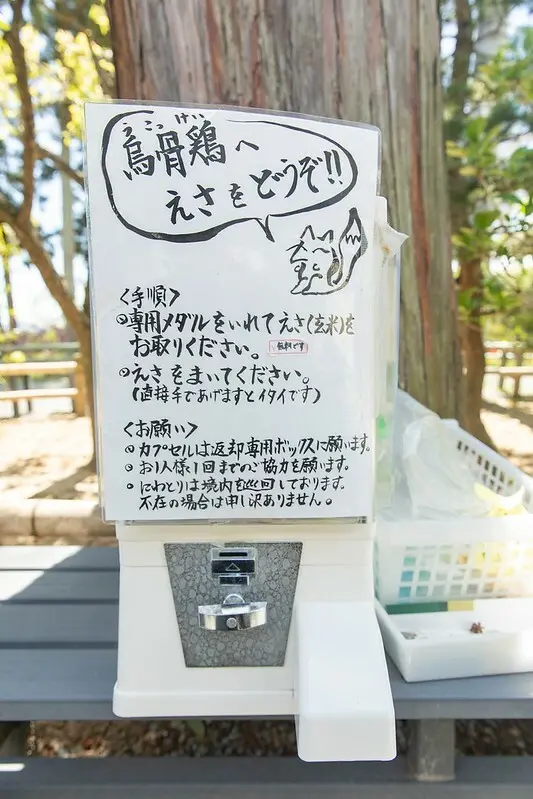 うこっけい
烏骨鶏へ
えさをどうぞ!!
<手順>
◎専用メダルをいれてえさ(玄米)を
お取りください。 無料です
◎えさをまいてください。
(直接手であげますとイタイです)
<お願い>
◎カプセルは返却専用ボックスに願います。
◎お1人様1回までのご協力を願います。
◎にわとりは境内を巡回しております。
不在の場合は申し訳ありません。